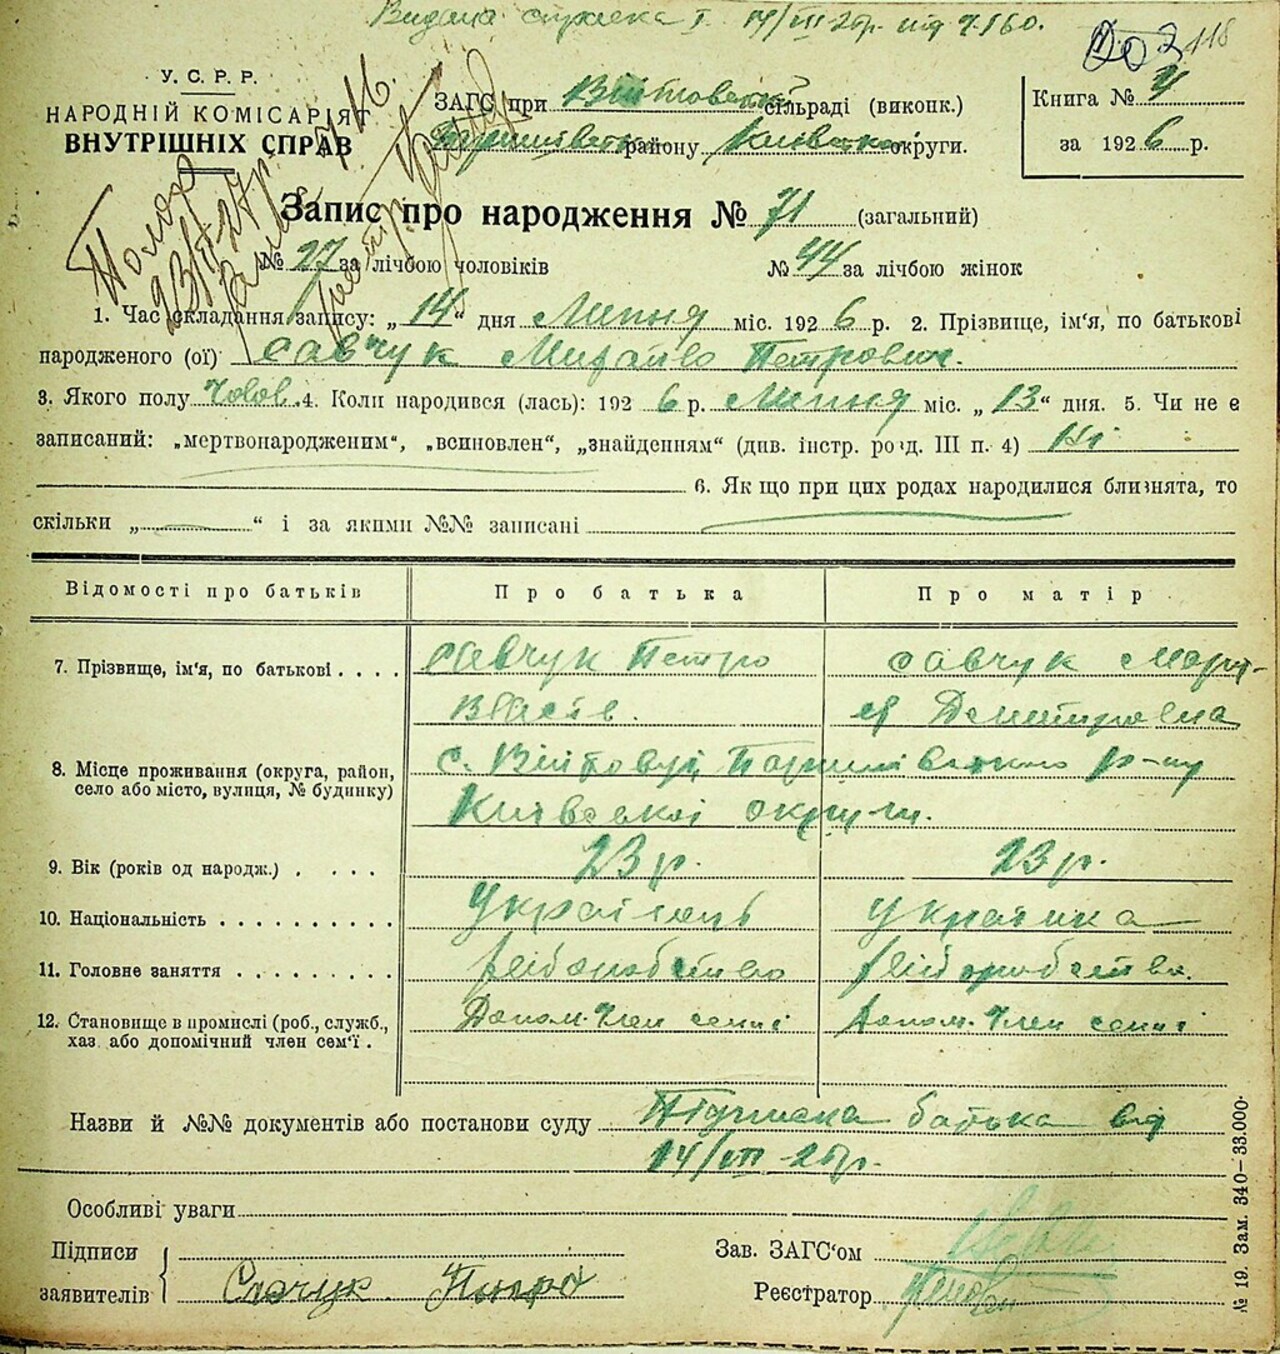 Видана справка 14/VII 26р. під ч. 160.
118
У. С. Р. Р.
НАРОДНІЙ КОМІСАРІЯТ
ВНУТРІШНІХ СПРАВ
ЗАГС при Війтовецькій сільраді (виконк.)
району Київської округи.
Книга № 4
за 1926 р.
Запис про народження № 71 (загальний)
№ 27 за лічбою чоловіків № 44 за лічбою жінок
1. Час складання запису: „14“ дня Липня міс. 1926 р. 2. Прізвище, ім'я, по батькові
народженого (ої) Савчук Михайло Петрович.
3. Якого полу Чолов. 4. Коли народився (лась): 1926 р. Липня міс. „13“ дня. 5. Чи не є
записаний: „мертвонародженим“, „всиновлен“, „знайденням“ (див. інстр. розд. III п. 4) Ні
6. Як що при цих родах народилися близнята, то
скільки „ “ і за якими №№ записані
Відомості про батьків Про батька Про матір
7. Прізвище, ім'я, по батькові . . . . Савчук Петро Савчук Марі-
я Дмитровна
8. Місце проживання (округа, район, с. Війтовці, р-ну
село або місто, вулиця, № будинку) Київської округи.
9. Вік (років од народж.) . . . . 23 р. 23 р.
10. Національність . . . . . . . . . . Українець Українка
11. Головне заняття . . . . . . . . . хліборобство хліборобство.
12. Становище в промислі (роб., служб., Допом. член семї Допом. член семї
хаз. або допомічний член сем'ї .
Назви й №№ документів або постанови суду Підписка батька від
14/VII 26р.
Особливі уваги
Підписи Зав. ЗАГС'ом
заявителів Савчук Петро Реєстратор
№ 19. Зам. 340–33.000.